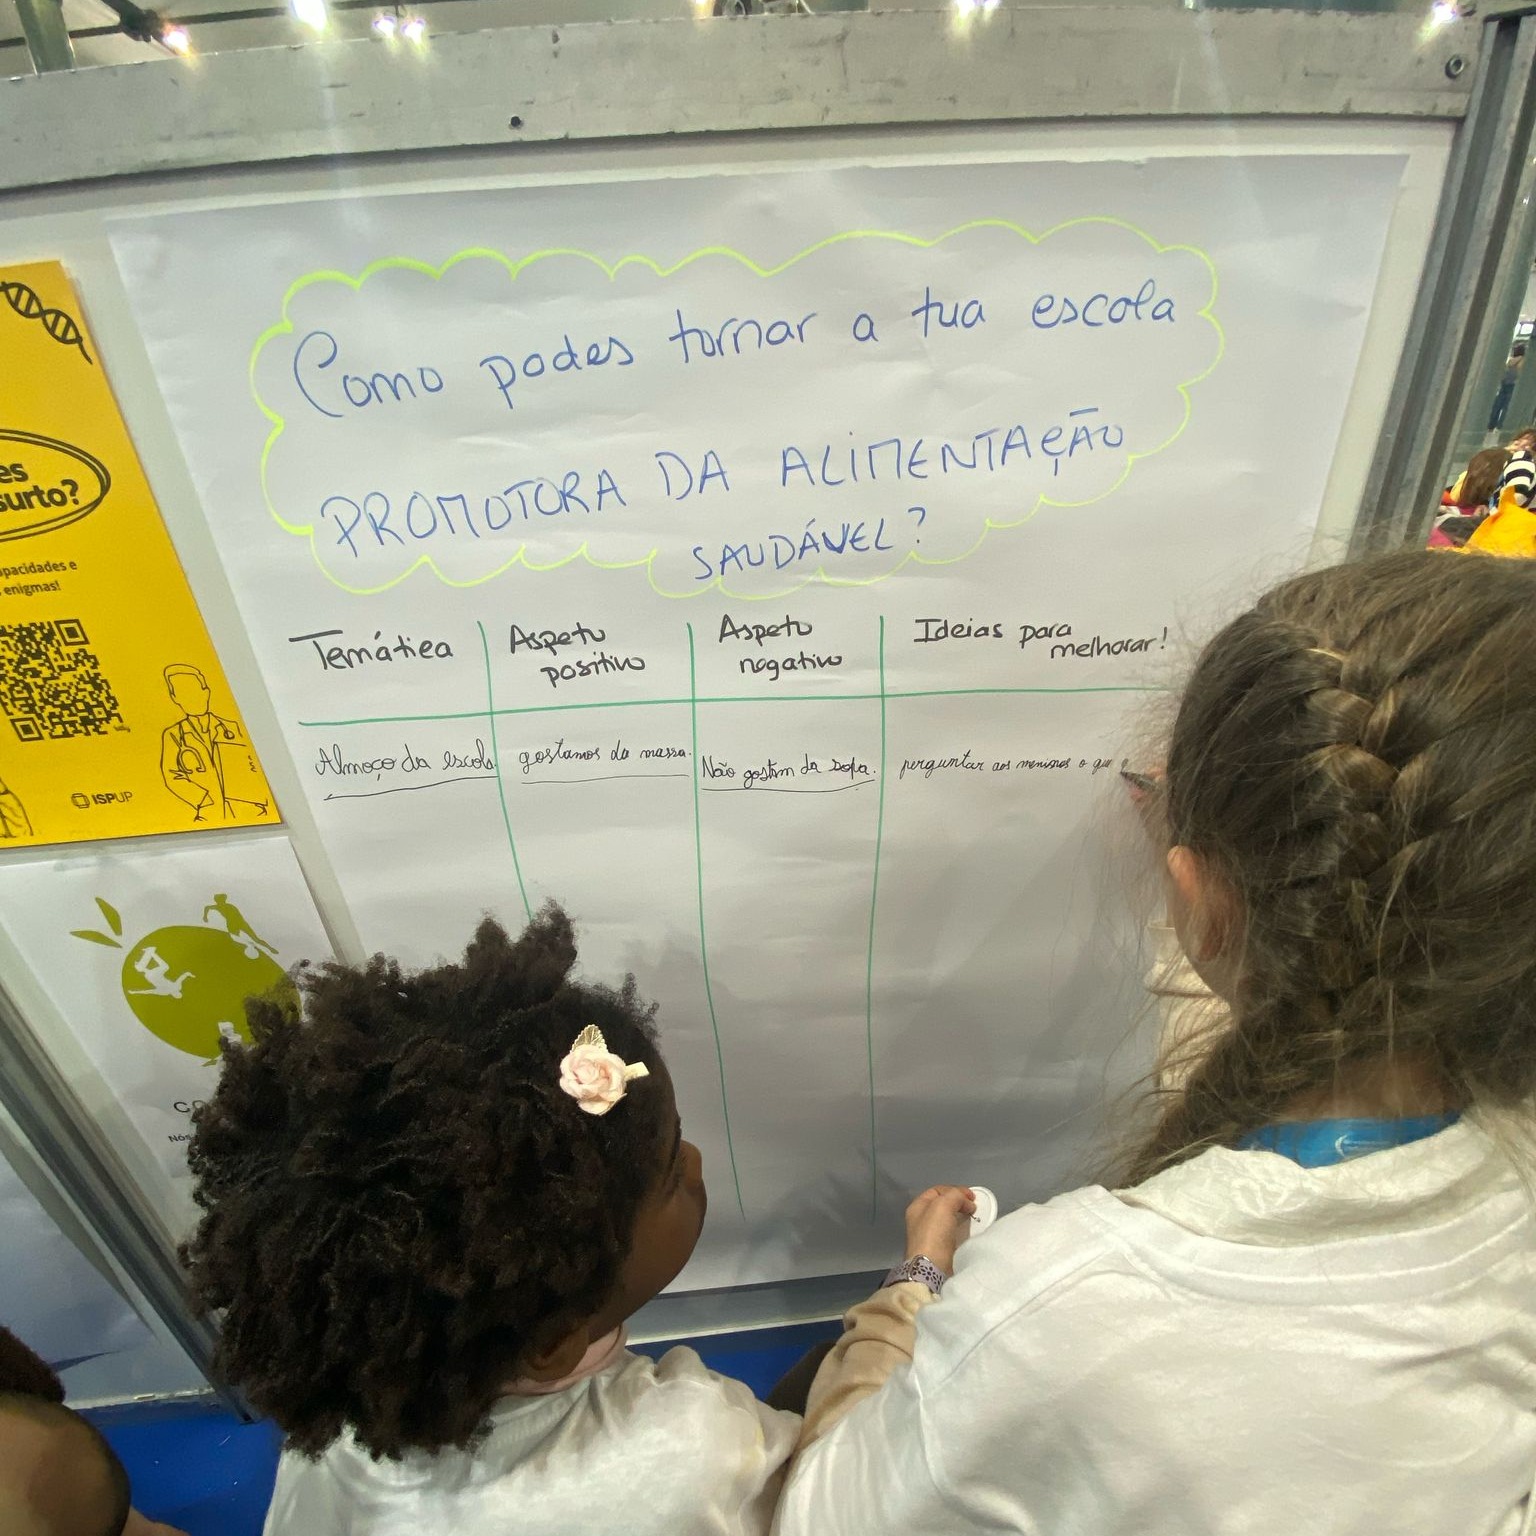 Como podes tornar a tua escola
PROMOTORA DA ALIMENTAÇÃO
SAUDÁVEL?
Temática
Aspeto
positivo
Aspeto
negativo
Ideias para
melhorar!
Almoço da escola
gostamos da massa.
Não gostam da sopa.
perguntar aos meninos o que
es
surto?
apacidades e
enigmas!
ISPUP